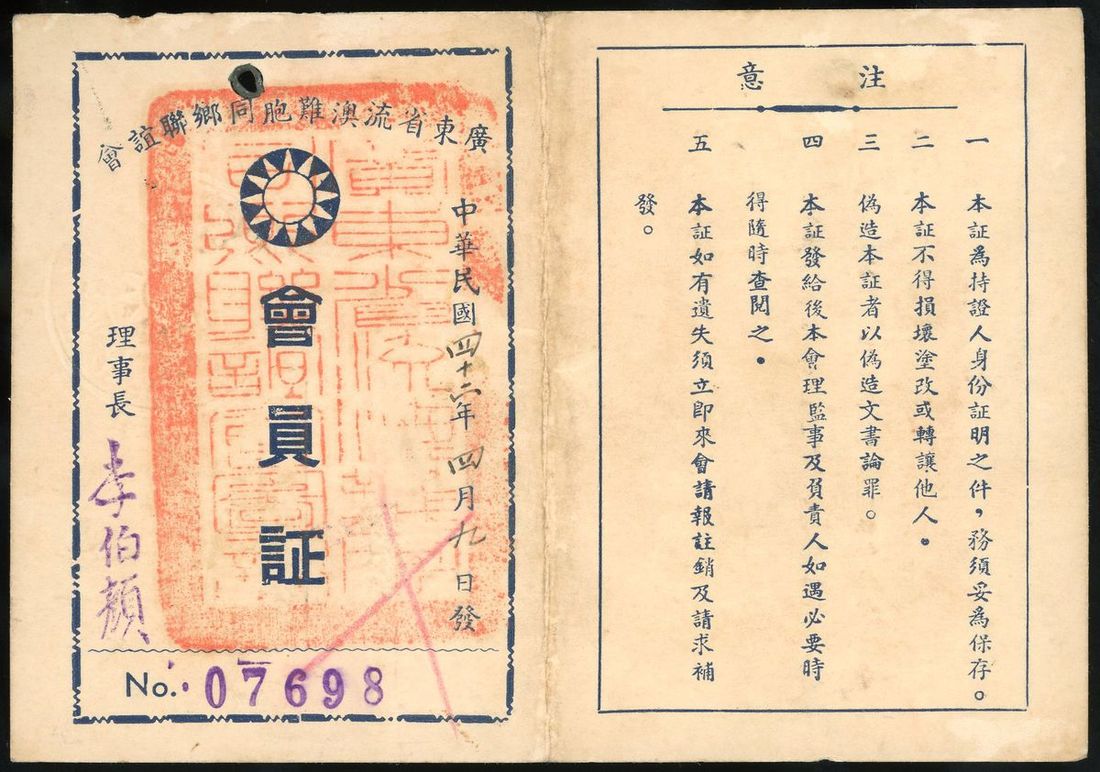 廣東省流澳難胞同鄉聯誼會
中華民國四十二年四月九日發
會員証
理事長 李伯頟
No. 07698
注意
一 本証為持證人身份証明之件，務須妥為保存。
二 本証不得損壞塗改或轉讓他人。
三 偽造本証者以偽造文書論罪。
四 本証發給後本會理監事及負責人如遇必要時
得隨時查閱之。
五 本証如有遺失須立即來會請報註銷及請求補
發。